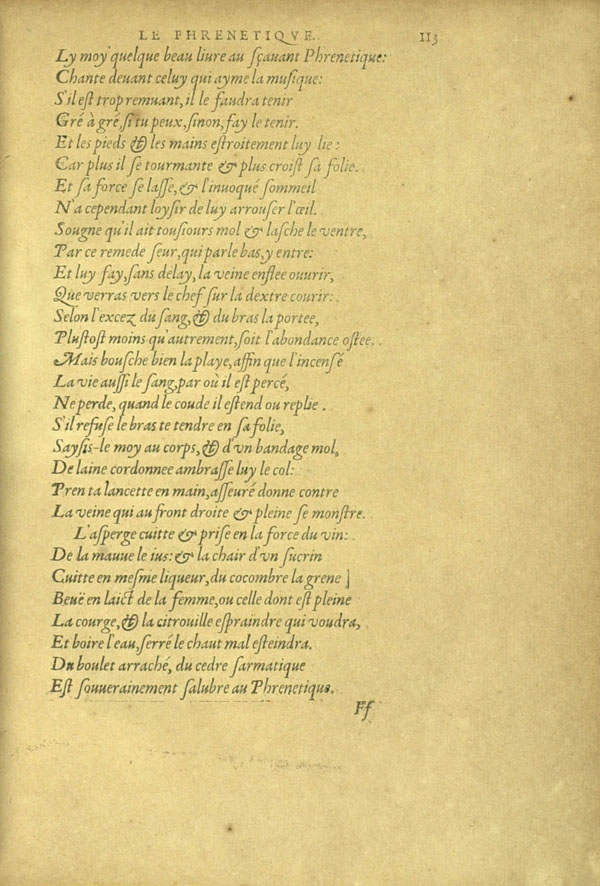 LE PHRENETIQVE. 113
Ly moy' quelque beau liure au sçauant Phrenetique:
Chante deuant celuy qui ayme la musique:
S'il est trop remuant, il le faudra tenir
Gré à gré, si tu peux, sinon, fay le tenir.
Et les pieds & les mains estroitement luy lie:
Car plus il se tourmante & plus croist sa folie.
Et sa force se lasse, & l'inuoqué sommeil
N'a cependant loysir de luy arrouser l'œil.
Sougne qu'il ait tousiours mol & lasche le ventre,
Par ce remede seur, qui par le bas, y entre:
Et luy fay, sans delay, la veine enflee ouurir,
Que verras vers le chef sur la dextre courir:
Selon l'excez du sang, & du bras la portee,
Plustost moins qu'autrement, soit l'abondance ostee.
Mais bousche bien la playe, affin que l'incensé
La vie aussi le sang, par où il est percé,
Ne perde, quand le coude il estend ou replie.
S'il refuse le bras te tendre en sa folie,
Saysis-le moy au corps, & d'vn bandage mol,
De laine cordonnee ambrasse luy le col:
Pren ta lancette en main, asseuré donne contre
La veine qui au front droite & pleine se monstre.
L'asperge cuitte & prise en la force du vin:
De la mauue le ius: & la chair d'vn sucrin
Cuitte en mesme liqueur, du cocombre la grene
Beuë en laict de la femme, ou celle dont est pleine
La courge, & la citrouille espraindre qui voudra,
Et boire l'eau, serré le chaut mal esteindra.
Du boulet arraché, du cedre sarmatique
Est souuerainement salubre au Phrenetique.
Ff